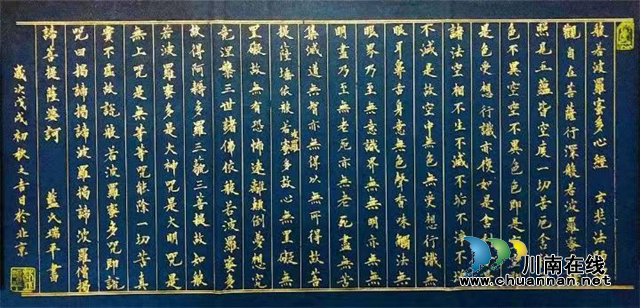 般若波羅蜜多心經 玄奘法
觀自在菩薩行深般若波羅蜜
照見五蘊皆空度一切苦厄舍
色不異空空不異色色即是
是色受想行識亦復如是舍
諸法空相不生不滅不垢不淨不
不減是故空中無色無受想行識無
眼耳鼻舌身意無色聲香味觸法無
眼界乃至無意識界無無明亦無無
明盡乃至無老死亦無老死盡無苦
集滅道無智亦無得以無所得故菩
提薩埵依般若波羅蜜多故心無罣礙無
罣礙故無有恐怖遠離顛倒夢想究
竟涅槃三世諸佛依般若波羅蜜多
故得阿耨多羅三藐三菩提故知般
若波羅蜜多是大神咒是大明咒是
無上咒是無等等咒能除一切苦真
實不虛故說般若波羅蜜多咒即說
咒曰揭諦揭諦波羅揭諦波羅僧揭
諦菩提薩婆訶 藍氏瑞平書
歲次戊戌初秋之吉日於北京
川南在线
www.chuannan.net